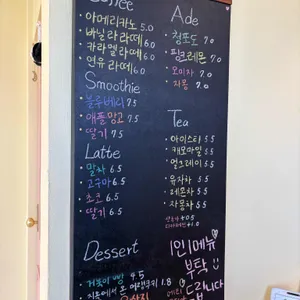 Coffee
아메리카노 5.0
바닐라라떼 6.0
카라멜라떼 6.0
연유라떼 6.0
Smoothie
블루베리 7.5
애플망고 7.5
딸기 7.5
Latte
말차 6.5
고구마 6.5
초코 6.5
딸기 6.5
Dessert
거북이빵 4.5
1.8
Ade
청포도 7.0
핑크레몬 7.0
오미자 7.0
자몽 7.0
Tea
아이스티 5.5
캐모마일 5.5
얼그레이 5.5
유자차 5.5
레몬차 5.5
자몽차 5.5
+0.5
+1.0
1인 1메뉴
부탁
드립니다